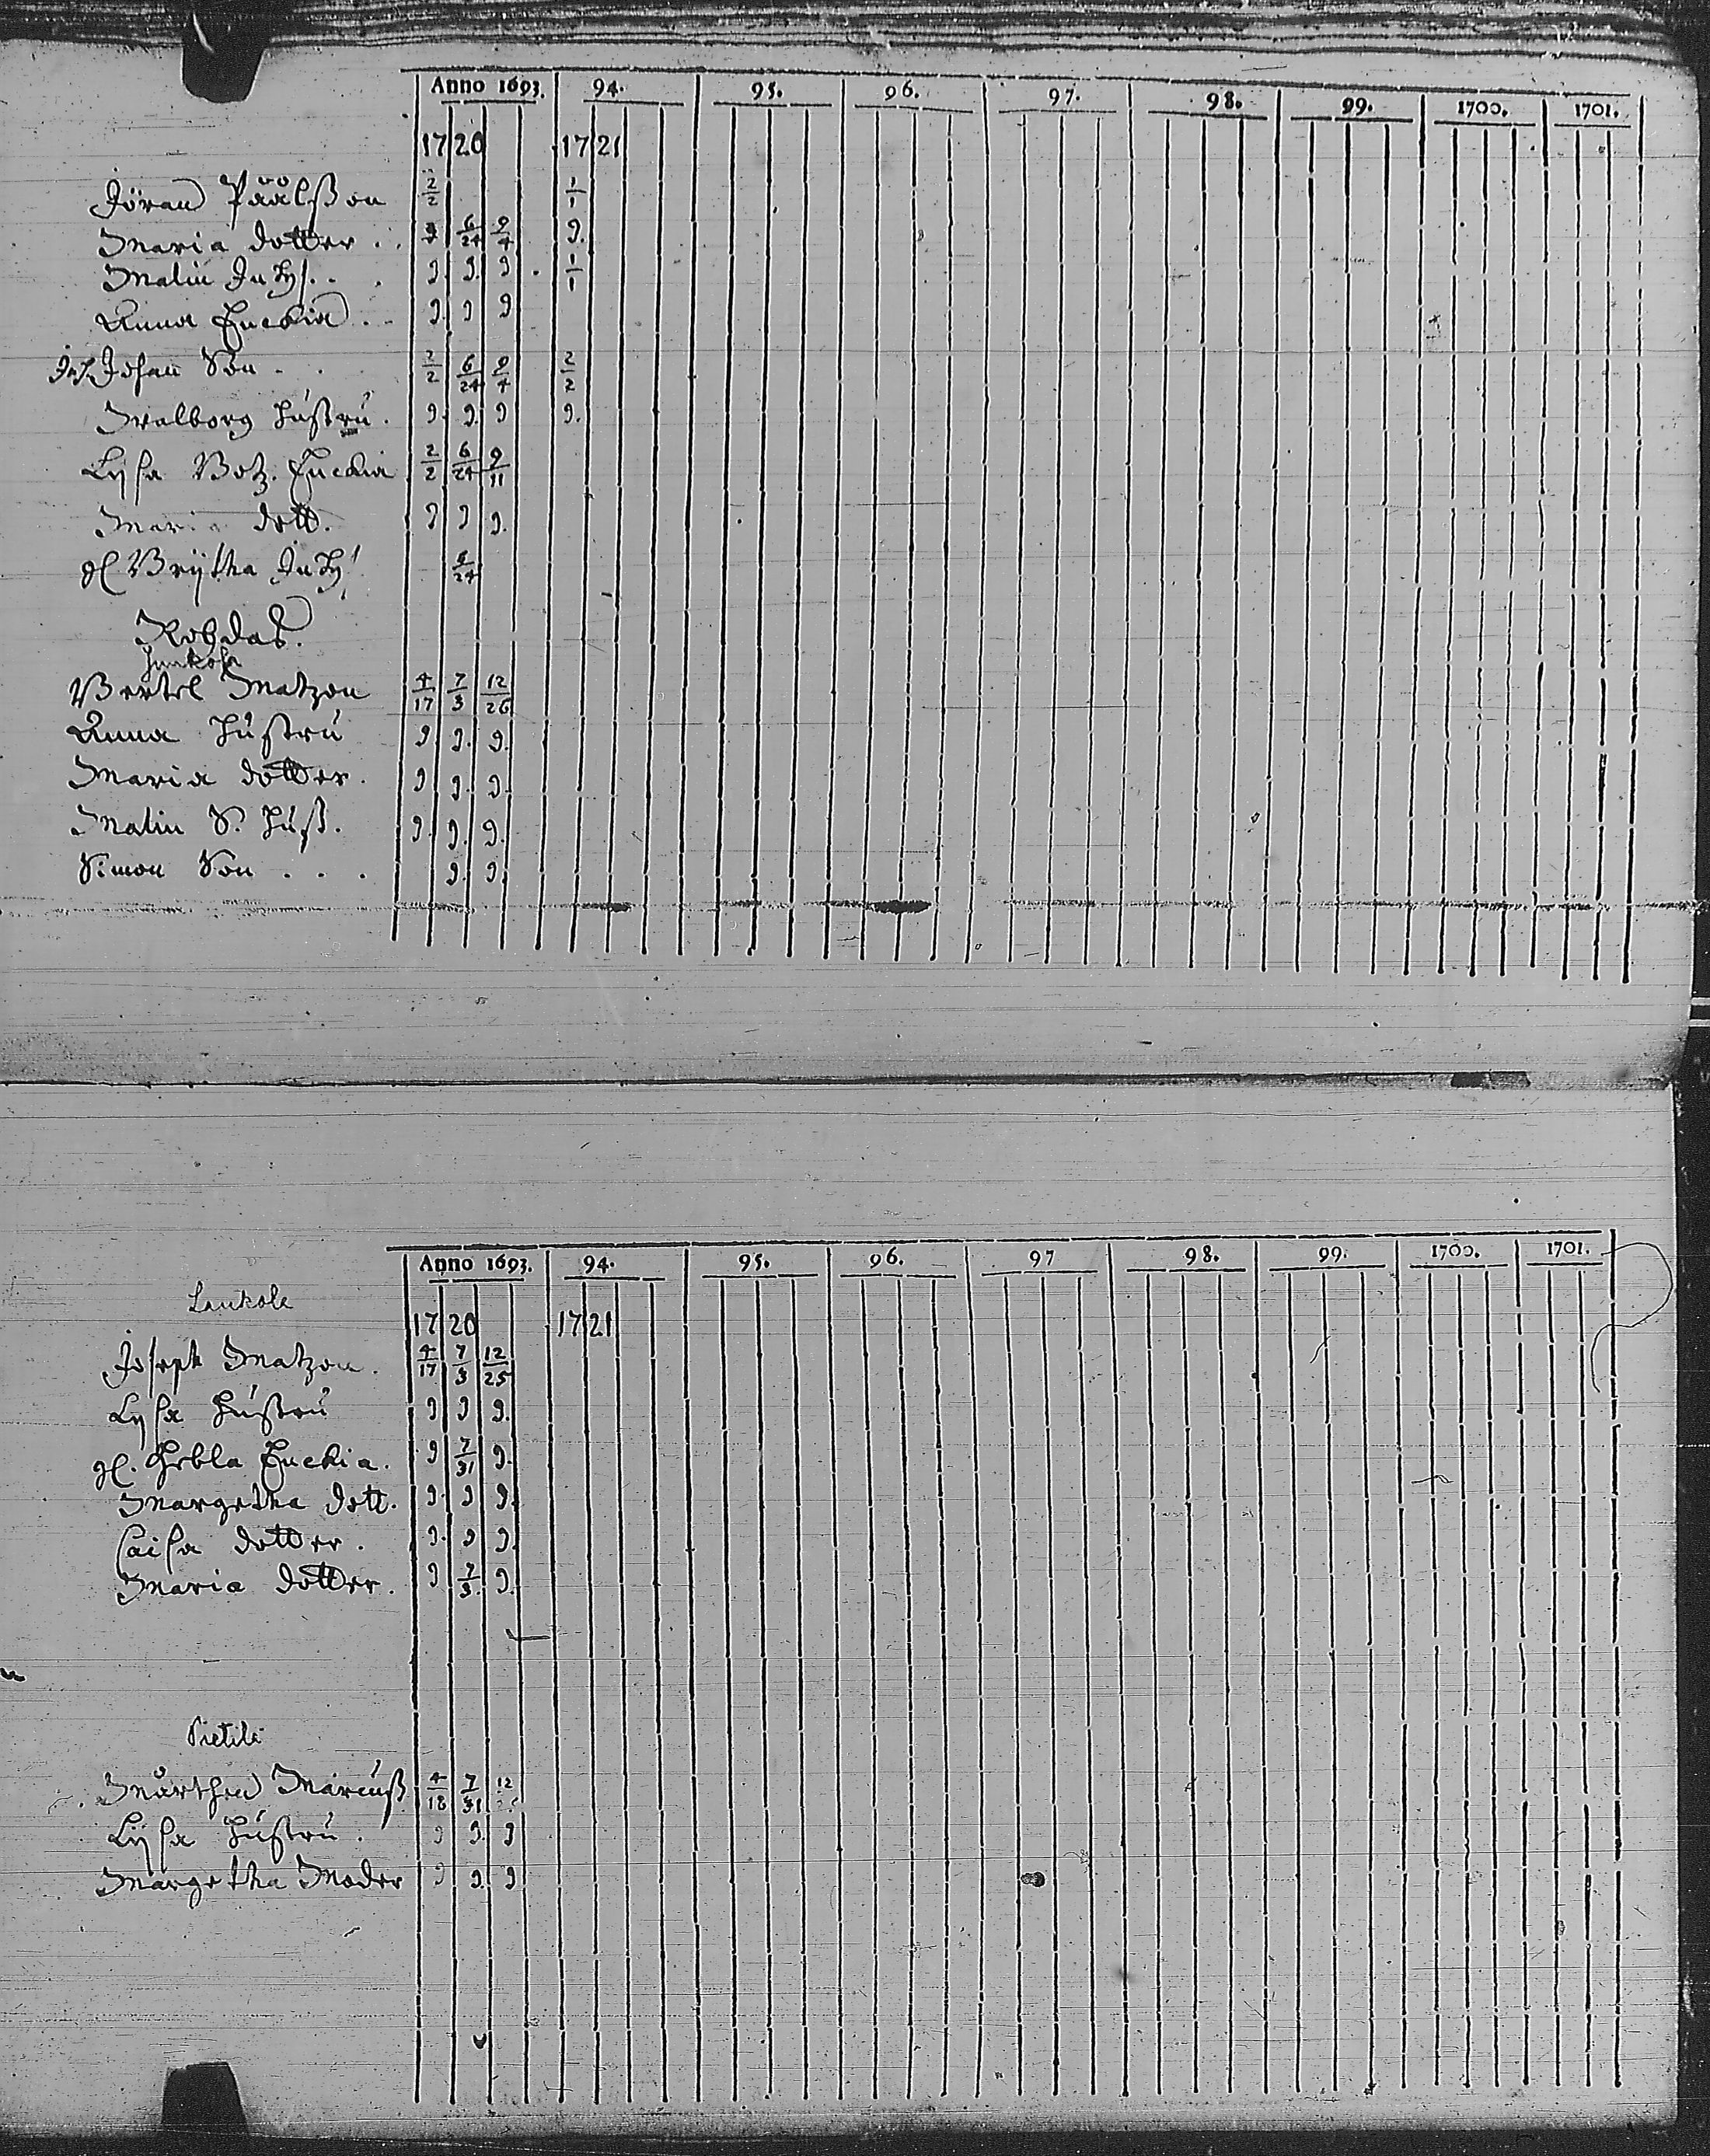 Anno 1693. 94. 95. 96. 97. 98. 99. 1700. 1701.
1720 1721
Jöran Påålsson 2/2 1/1
Maria dotter . . 6/24 9/4 9.
Malin Inhys. . . 9. 9. 9 . 1/1
Anna Enckia . . 9. 9 9
Inh. Johan Son . . 2/2 6/24 9/4 2/2
Walborg hustru. 9. 9. 9 9.
Lysa Botz. Enckia 2/2 6/24 9/11
Maria dott. 9 9 9.
gl Brijtha Inhy 6/24
Junkola
Bertel Matzon 4/17 7/3 12/26
Anna hustru 9 9. 9.
Maria dotter. 9 9. 9.
Malin S. hust. 9. 9. 9.
Simon Son . . . 9. 9.
Anno 1693. 94. 95. 96. 97 98. 99. 1700. 1701.
Laukola
1720 1721
Joseph Matzon. 4/17 7/3 12/25
Lysa hustru 9 9 9.
gl. Hebla Enckia. 9 7/31 9.
Margetha dott. 9. 9 9.
Caisa dotter. 9. 9 9.
Maria dotter. 9 7/3. 9.
Pietilä
Mårthen Marcuss 4/18 7/31 12
Lijsa hustru. 9 9. 9
Margetha Moder 9 9. 9